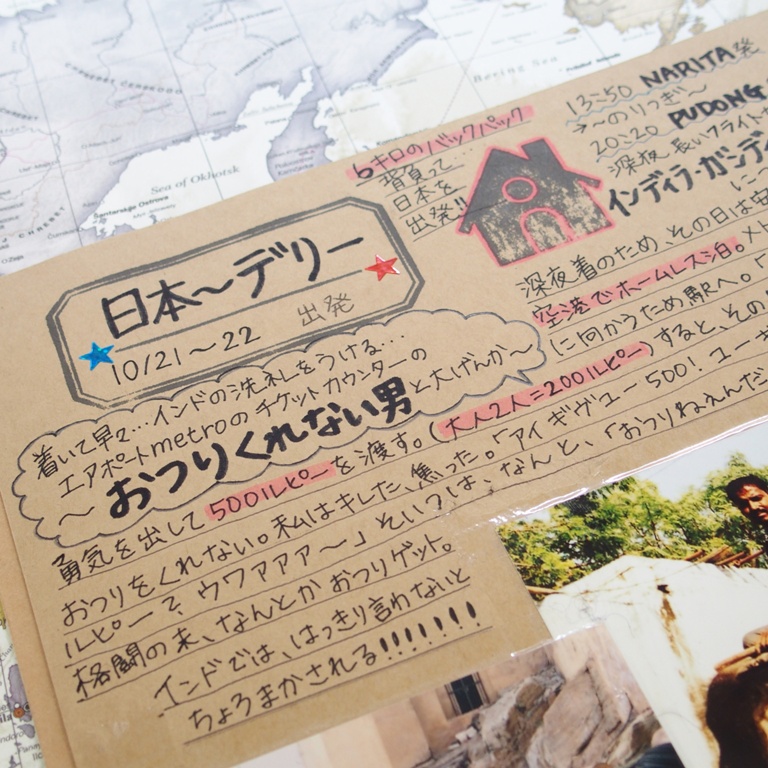 Bering Sea
Sea of Okhotsk
Santarskije Ostrova
6キロのバックパック
背負って…
日本を
出発!!
13:50 NARITA発
→〜のりつぎ〜
20:20 PUDONG
深夜 長いフライト
インディラ・ガンディ
につ
日本〜デリー
10/21〜22 出発
深夜着のため、その日は安
空港でホームレス泊。メト
に向かうため駅へ。「
着いて早々…インドの洗礼をうける…
エアポートmetroのチケットカウンターの
〜おつりくれない男と大げんか〜
勇気を出して500ルピーを渡す。(大人2人=200ルピー)すると、その
おつりをくれない。私はキレた、焦った。「アイ ギヴ ユー 500! ユー ギ
ルピーで、ウワァァァ〜」そいつは、なんと、「おつりねぇんだ
格闘の末、なんとかおつりゲット。
インドでは、はっきり言わないと
ちょろまかされる!!!!!!!